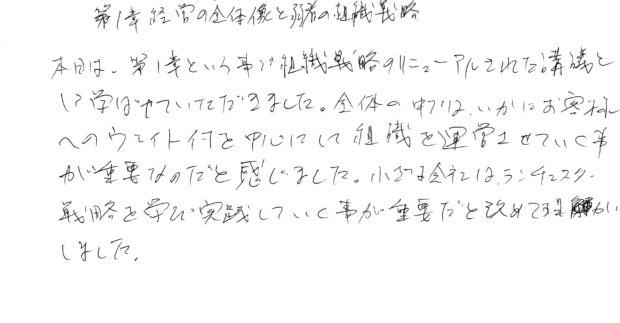 第1章 経営の全体像と弱者の組織戦略
本日は、第1章という事で組織戦略のリニューアルされた講議と
して学ばせていただきました。全体の中では、いかにお客様
へのウェイト付を中心にして組織を運営させていく事
が重要なのだと感じました。小さな会社は、ランチェスター
戦略を学び実践していく事が重要だと改めて理解い
しました。